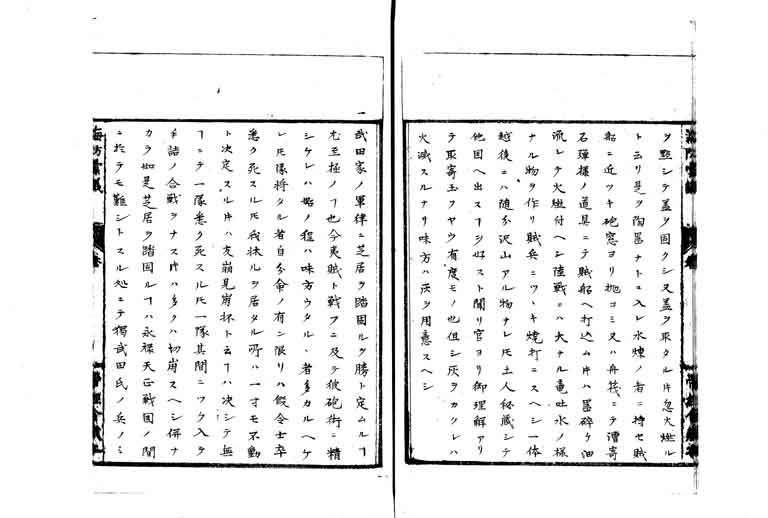 ヲ點シテ蓋ヲ固クシ又蓋ヲ取タル片忽火燃ル
ト云リ是ヲ陶噐ナトニ入レ水煉ノ者ニ持セ賊
船ニ近ツキ砲窓ヨリ抛コミ又ハ舟筏ニテ漕寄
石彈様ノ道具ニテ賊船ヘ打込ム片ハ噐碎ケ油
流レテ火燃付ヘシ陸戰ニハ大ナル竜吐水ノ様
ナル物ヲ作リ賊兵ニツヽキ燒打ニスヘシ一体
越後ニハ随分沢山アル物ナレ𪜈土人秘蔵シテ
他国ヘ出スヿ少シ好スト聞リ官ヨリ御理解アリ
テ取寄玉フヤウ有度モノ也但シ灰ヲカクレハ
火滅スルナリ味方ハ灰ヲ用意スヘシ
武田家ノ軍律ニ芝居ヲ踏固ルヲ勝ト定ムルヿ
尤至極ノヿ也今夷賊ト戰フニ及テ彼砲術ニ精
シケレハ始ノ程ハ味方ウタルヽ者多カルヘケ
レ𪜈隊将タル者自分命ノ有ン限リハ假令士卒
悉ク死スル𪜈我床ルヲ居タル所ハ一寸モ不動
ト决定スル片ハ友崩見崩抔ト云ヿハ决シテ無
ヿニテ一隊悉ク死スル𪜈一隊其間ニツク入ヲ
手詰ノ合戰ヲナス片ハ多クハ切崩スヘシ併ナ
カラ如是芝居ヲ踏固ルヿハ永禄天正戰国ノ間
ニ於テモ難シトスル処ニテ獨武田氏ノ兵ノミ
海防彙議